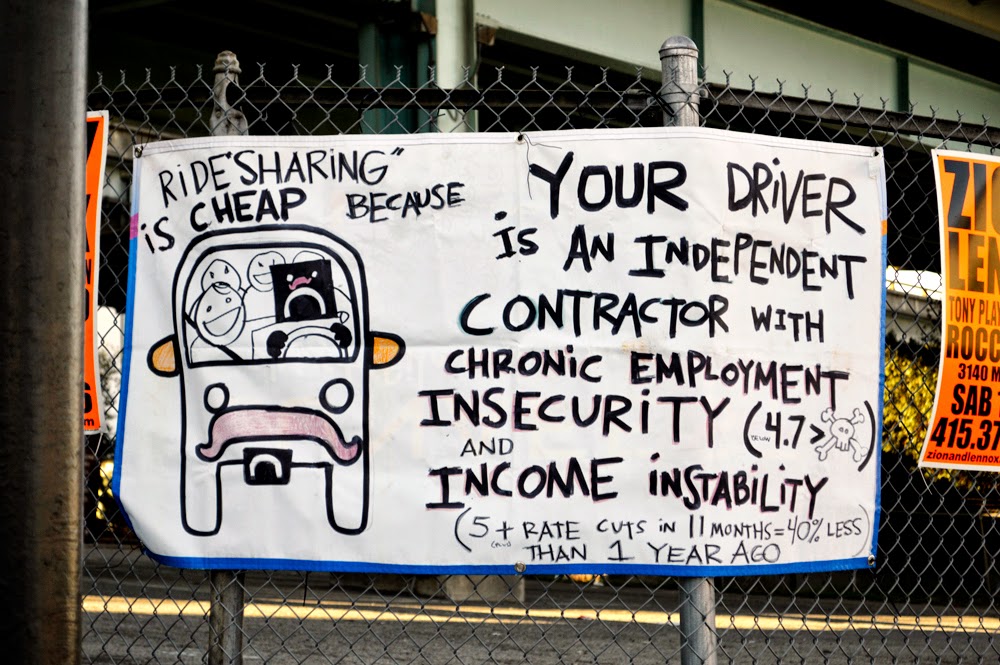 RIDE"SHARING"
iS CHEAP BECAUSE
YOUR DRiVER
iS AN INDEPENDENT
CONTRACTOR WiTH
CHRONIC EMPLOYMENT
INSECURITY (BELOW 4.7>)
AND
INCOME iNSTABiLITY
(5+ RATE CUTS iN 11 MONTHS=40% LESS)
(plus) THAN 1 YEAR AGO
ZIO
LEN
TONY PLA
ROCC
3140 M
SAB
415.37
zionandlennox.